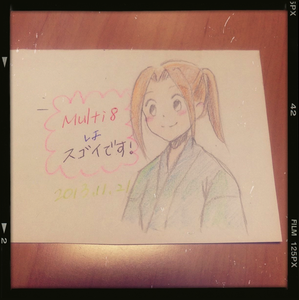 Multi8
は
スゴイです!
2013.11.21
5PX
42
FILM 125PX
2